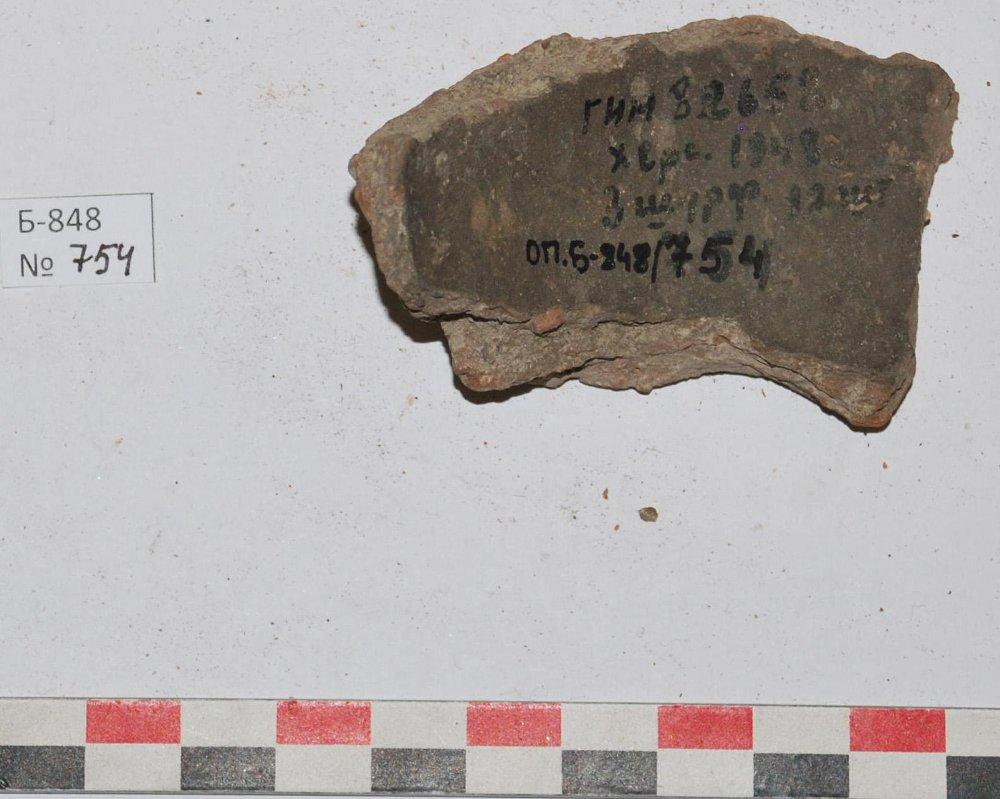 Б-848
№ 754
ГИМ 82658
херс. 1948
3 шурф. 12 шт
ОП.Б-848/754